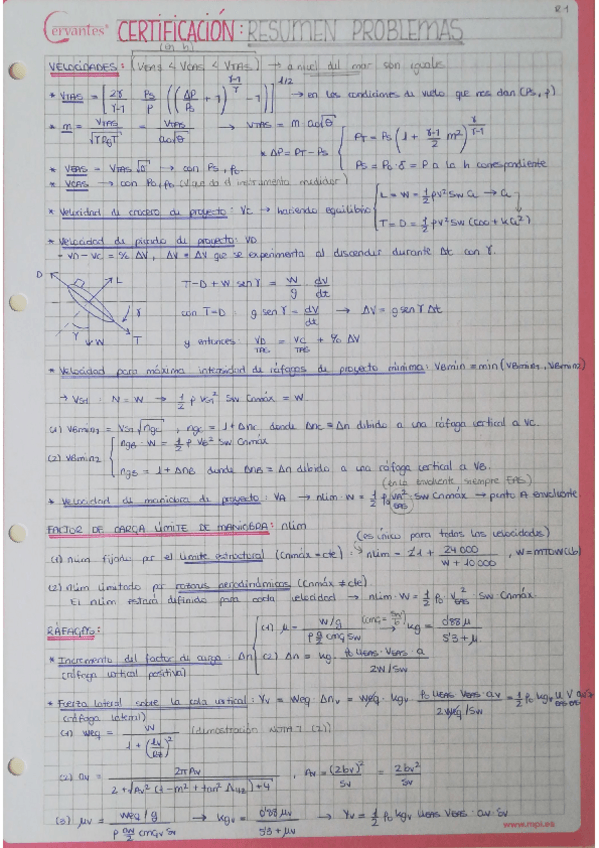 R-1
Cervantes CERTIFICACIÓN: RESUMEN PROBLEMAS
(en h)
VELOCIDADES: (VEAS < VCAS < VTAS) → a nivel del mar son iguales
* VTAS = [2γ/(γ-1) Ps/ρ ((ΔP/Ps + 1)^((γ-1)/γ) - 1)]^1/2 → en las condiciones de vuelo que nos dan (Ps, ρ)
* m = VTAS/√(γRgT) = VTAS/(ao√θ) → VTAS = m ao√θ
* ΔP = PT - Ps { PT = Ps (1 + (γ-1)/2 m²)^(γ/(γ-1))
Ps = Po·δ = P a la h correspondiente
* VEAS = VTAS√σ → con Ps, ρo
* VCAS → con Po, ρo (V que da el instrumento medidor)
* Velocidad de crucero de proyecto: Vc → haciendo equilibrio { L = W = 1/2 ρV² Sw CL → CL
T = D = 1/2 ρV² Sw (CDO + kCL²)
* Velocidad de picado de proyecto: VD
- VD - VC = % ΔV, ΔV = ΔV que se experimenta al descender durante Δt con γ.
D L γ γ W T
T - D + W sen γ = W/g dV/dt
con T=D: g sen γ = dV/dt → ΔV = g sen γ Δt
y entonces: VD TAS = VC TAS + % ΔV
* Velocidad para máxima intensidad de ráfagas de proyecto mínima: VBmin = min (VBmin1, VBmin2)
→ VS1: N = W → 1/2 ρ VS1² Sw CNmáx = W.
(1) VBmin1 = VS1√ngc, ngc = 1 + Δnc donde Δnc = Δn debido a una ráfaga vertical a VC.
(2) VBmin2 { ngB · W = 1/2 ρ VB² Sw CNmáx
ngB = 1 + ΔnB donde ΔnB = Δn debido a una ráfaga vertical a VB.
(en la envolvente siempre EAS)
* Velocidad de maniobra de proyecto: VA → nlim·W = 1/2 ρo VA² EAS · Sw CNmáx → punto A envolvente
FACTOR DE CARGA LÍMITE DE MANIOBRA: nlim
(es único para todas las velocidades)
(1) nlim fijado por el límite estructural (CNmáx = cte): nlim = 2'1 + 24 000/(W + 10 000), W = MTOW (lb)
(2) nlim limitado por razones aerodinámicas (CNmáx ≠ cte).
El nlim estará definido para cada velocidad → nlim·W = 1/2 ρo·V² EAS · Sw·CNmáx.
RÁFAGAS:
* Incremento del factor de carga: Δn { (1) μ = (W/g)/(ρ a/2 CMG Sw) (CMG = Sw/b) → kg = 0'88 μ/(5'3 + μ)
(ráfaga vertical positiva) (2) Δn = kg · ρo UEAS · VEAS · a/(2W/Sw)
* Fuerza lateral sobre la cola vertical: Yv = Weq Δnv = Weq · kgv · ρo UEAS VEAS · av/(2 Weq/Sv) = 1/2 ρo kgv U EAS V EAS av Sv
(ráfaga lateral)
(1) Weq = W/(1 + (lv/Rz)²) (demostración NOTA 7 (2))
(2) av = 2πAv/(2 + √(Av²(1 - m² + tan² Λ1/2) + 4)), Av = (2bv)²/Sv = 2bv²/Sv
(3) μv = (Weq/g)/(ρ av/2 CMGv Sv) → kgv = 0'88 μv/(5'3 + μv) → Yv = 1/2 ρo kgv UEAS VEAS · av·Sv
www.mpi.es